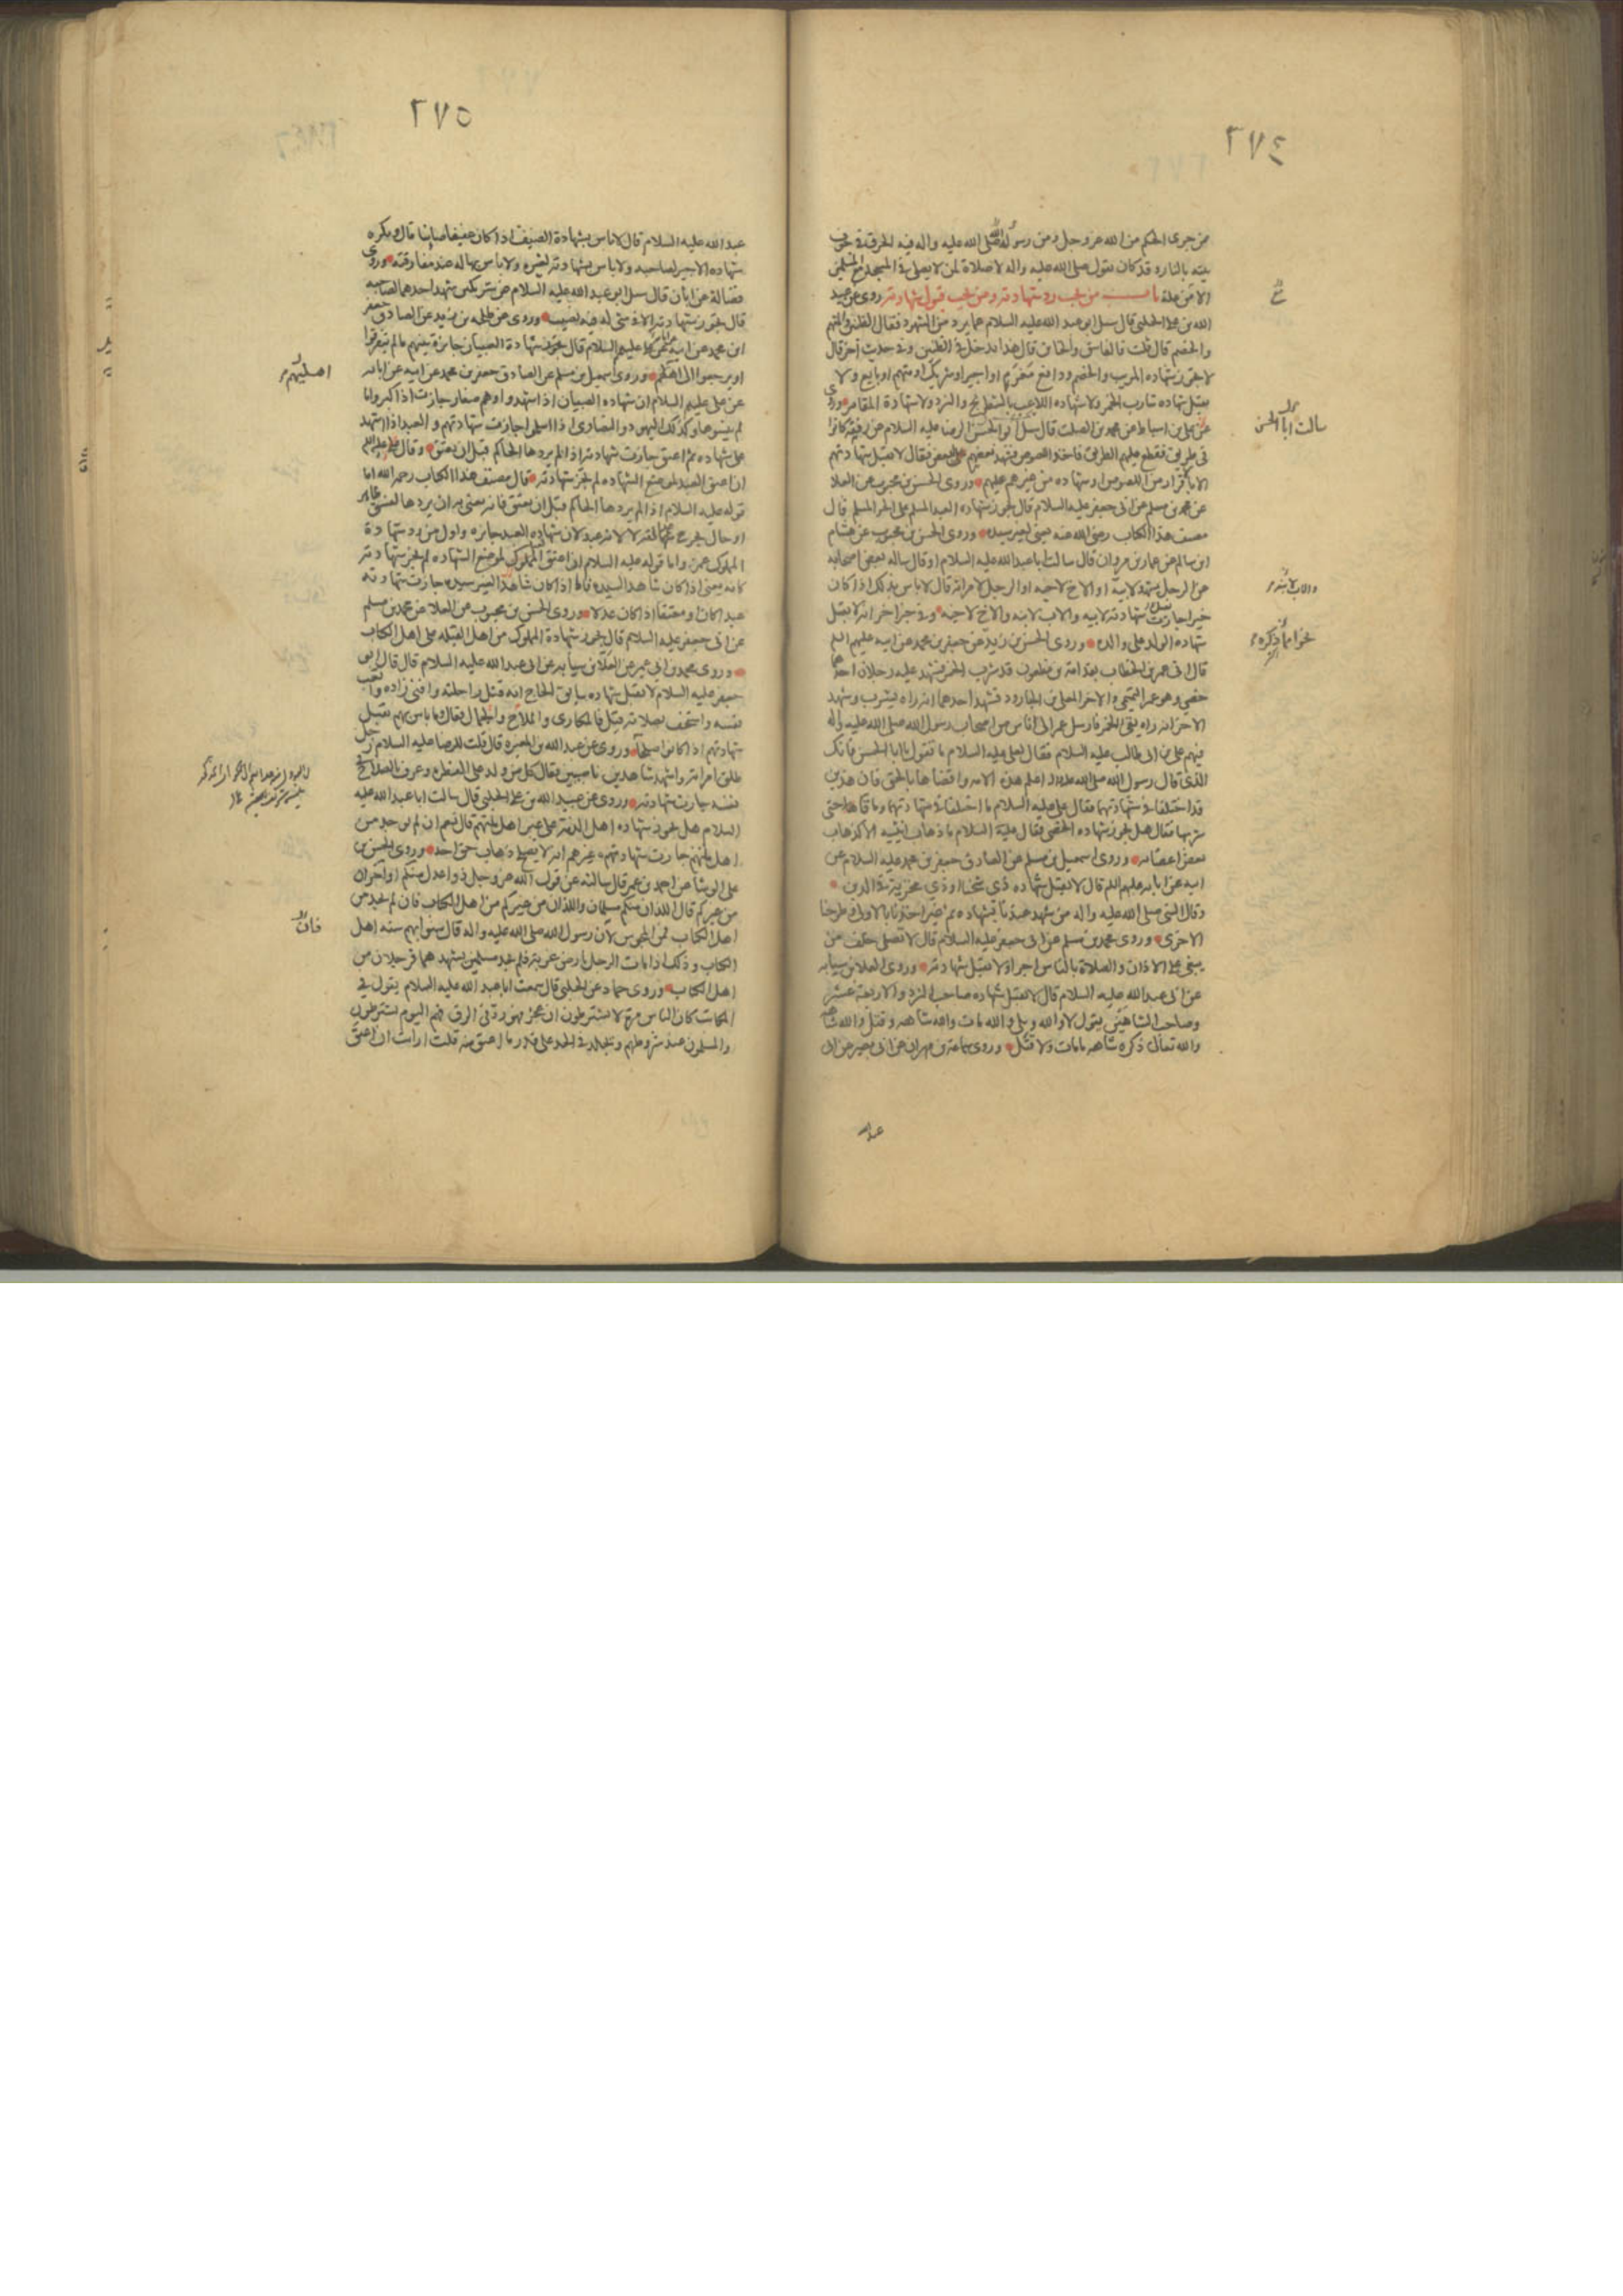 ٢٧٤
ممن جرى الحكم من الله عز وجل ومن رسوله صلى الله عليه واله فيه الحرقة في جوف
بيته بالنار وقد كان يقول صلى الله عليه واله لا صلاة لمن لا يصلي في المسجد مع المسلمين
الا من علة باب من يجب رد شهادته ومن يجب قبول شهادته روى عن عبيد
الله بن علي الحلبي قال سئل ابو عبد الله عليه السلام عما يرد من الشهود فقال الظنين والمتهم
والخصم قال قلت فالفاسق والخائن قال هذا يدخل في الظنين وفي حديث آخر قال
لا يجوز شهادة المريب والخصم ودافع مغرم او اجير او شريك او متهم او بايع ولا
يقبل شهادة شارب الخمر ولا شهادة اللاعب بالشطرنج والنرد ولا شهادة المقامر وروى
عن علي بن اسباط عن محمد بن الصلت قال سئل ابو الحسن الرضا عليه السلام عن رفقة كانوا
سالت ابا الحسن
في طريق فقطع عليهم الطريق فاخذوا اللصوص فشهد بعضهم على البعض فقال لا يقبل شهادتهم
الا باقرار من اللصوص او شهادة من غيرهم عليهم وروى الحسن بن محبوب عن العلا
عن محمد بن مسلم عن ابي جعفر عليه السلام قال يجوز شهادة العبد المسلم على الحر المسلم قال
مصنف هذا الكتاب رضي الله عنه يعني لغير سيده وروى الحسن بن محبوب عن هشام
ابن سالم عن عمار بن مروان قال سالت ابا عبد الله عليه السلام او قال ساله بعض اصحابه
عن الرجل يشهد لابيه او الاخ لاخيه او الرجل لامراته قال لا باس بذلك اذا كان
والاب لابنه
خيرا جازت شهادته لابيه والاب لابنه والاخ لاخيه وفي خبر اخر انه لا يقبل
شهادة الولد على والده وروى الحسن بن زيد عن جعفر بن محمد عن ابيه عليهم السلم
قال اتى عمر بن الخطاب بقدامة بن مظعون قد شرب الخمر فشهد عليه رجلان احدهما
خصي وهو عمرو التميمي والاخر المعلى بن الجارود فشهد احدهما انه راه يشرب وشهد
الاخر انه راه يقئ الخمر فارسل عمر الى اناس من اصحاب رسول الله صلى الله عليه واله
فيهم علي بن ابي طالب عليه السلام فقال لعلي عليه السلام ما تقول يا ابا الحسن فانك
الذي قال رسول الله صلى الله عليه واله اعلم هذه الامة واقضاها بالحق فان هذين
قد اختلفا في شهادتهما فقال علي عليه السلام ما اختلفا في شهادتهما وما قاءها حتى
شربها فقال هل يجوز شهادة الخصي فقال عليه السلام ما ذهاب انثييه الا كذهاب
بعض اعضائه وروى اسمعيل بن مسلم عن الصادق جعفر بن محمد عليه السلام عن
ابيه عن ابائه عليهم السلم قال لا تقبل شهادة ذي شحنا او ذي مخزية في الدين
وقال النبي صلى الله عليه واله من شهد عندنا بشهادة ثم غير اخذنا بالاولى وطرحنا
الاخرى وروى محمد بن مسلم عن ابي جعفر عليه السلام قال لا تصلي خلف من
يبغي على الاذان والصلاة بالناس اجرا ولا تقبل شهادته وروى العلا بن سيابه
عن ابي عبد الله عليه السلام قال لا تقبل شهادة صاحب النرد والاربعة عشر
وصاحب الشاهين يقول لا والله وبلى والله مات والله شاهه وقتل والله شاهه
والله تعالى ذكره شاهه ما مات ولا قتل وروى سماعة بن مهران عن ابي بصير عن ابي
عبد الله
٢٧٥
عبد الله عليه السلام قال لا باس بشهادة الضيف اذا كان عفيفا صاينا قال ويكره
شهادة الاجير لصاحبه ولا باس بشهادته لغيره ولا باس بها له عند مفارقته وروى
فضالة عن ابان قال سئل ابو عبد الله عليه السلام عن شريكين شهد احدهما لصاحبه
قال تجوز شهادته الا في شئ له فيه نصيب وروى عن طلحه بن زيد عن الصادق جعفر
ابن محمد عن ابيه عن علي عليهم السلام قال تجوز شهادة الصبيان جائزة بينهم ما لم يتفرقوا
او يرجعوا الى اهليهم وروى اسمعيل بن مسلم عن الصادق جعفر بن محمد عن ابيه عن ابائه
اهليهم
عن علي عليهم السلام ان شهادة الصبيان اذا شهدوا وهم صغار جازت اذا كبروا ما
لم ينسوها وكذلك اليهود والنصارى اذا اسلموا جازت شهادتهم والعبد اذا شهد
على شهادة ثم اعتق جازت شهادته اذا لم يردها الحاكم قبل ان يعتق وقال علي عليه السلم
ان اعتق العبد لموضع الشهادة لم تجز شهادته قال مصنف هذا الكتاب رحمه الله اما
قوله عليه السلام اذا لم يردها الحاكم قبل ان يعتق فانه يعني به ان يردها لفسق ظاهر
او حال يجرح عدالته لا لانه عبد لان شهادة العبد جايزة واول من رد شهادة
المملوك عمر واما قوله عليه السلام ان اعتق المملوك لموضع الشهادة لم تجز شهادته
كانه يعني اذا كان شاهدا لسيده فاما اذا كان شاهدا لغير سيده جازت شهادته
عبدا كان او معتقا اذا كان عدلا وروى الحسن بن محبوب عن العلا عن محمد بن مسلم
عن ابي جعفر عليه السلام قال يجوز شهادة المملوك من اهل القبلة على اهل الكتاب
وروى محمد بن ابي عمير عن العلا بن سيابه عن ابي عبد الله عليه السلام قال قال ابو
جعفر عليه السلام لا تقبل شهادة سابق الحاج انه قتل راحلته وافنى زاده واتعب
نفسه واستخف بصلاته قيل فالمكاري والملاح والجمال فقال وما باس بهم تقبل
شهادتهم اذا كانوا صلحا وروى عن عبد الله بن المغيرة قال قلت للرضا عليه السلام رجل
طلق امراته واشهد شاهدين ناصبيين فقال كل من ولد على الفطرة وعرف بالصلاح في
نفسه جازت شهادته وروى عن عبيد الله بن علي الحلبي قال سالت ابا عبد الله عليه
السلام هل تجوز شهادة اهل الذمة على غير اهل ملتهم قال نعم ان لم يوجد من
اهل ملتهم جازت شهادتهم على غيرهم انه لا يصلح ذهاب حق احد وروى الحسن بن
علي الوشا عن احمد بن عمر قال سالته عن قول الله عز وجل ذوا عدل منكم او آخران
من غيركم قال اللذان منكم مسلمان واللذان من غيركم من اهل الكتاب فان لم يجد من
فان
اهل الكتاب فمن المجوس لان رسول الله صلى الله عليه واله قال سنوا بهم سنة اهل
الكتاب وذلك اذا مات الرجل بارض غربة فلم يجد مسلمين يشهدهما فرجلان من
اهل الكتاب وروى حماد عن الحلبي قال سمعت ابا عبد الله عليه السلام يقول في
المكاتب كان الناس مرة لا يشترطون ان عجز فهو رد في الرق فهم اليوم يشترطون
والمسلمون عند شروطهم ويجلد في الحد على قدر ما اعتق منه قلت ارايت ان اعتق